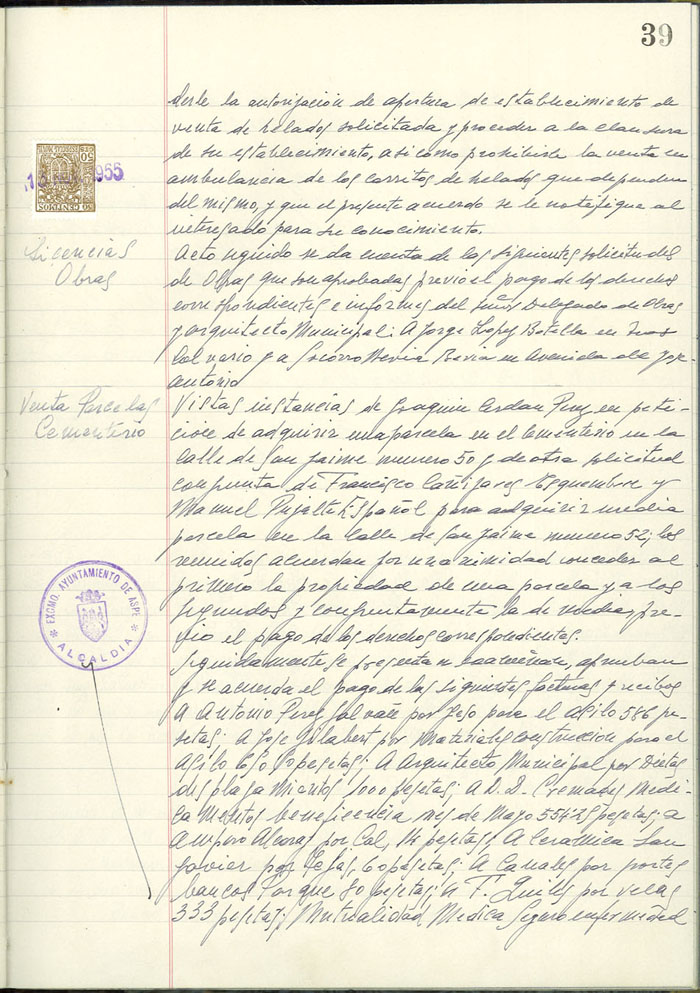 39
derle la autorización de apertura de establecimiento de
venta de helados solicitada y proceder a la clausura
de su establecimiento, asi como prohibirle la venta en
ambulancia de los carritos de helados que dependen
del mismo, y que el presente acuerdo se le notifique al
interesado para su conocimiento.
Licencias
Obras
Acto seguido se da cuenta de las siguientes solicitudes
de Obras que son aprobadas previo el pago de los derechos
correspondientes e informes del señor Delegado de Obras
y arquitecto Municipal: A Jorge Lopez Botella en
Calvario y a Socorro en Avenida de Jose
Antonio
Venta Parcelas
Cementerio
Vistas instancias de Joaquin Cerdan Perez en peti-
cion de adquirir una parcela en el Cementerio en la
calle de San Jaime numero 50 y de otra solicitud
conjunta de Francisco Cañizares y
Manuel Pujalte Español para adquirir media
parcela en la Calle de San Jaime numero 52; los
reunidos acuerdan por unanimidad conceder al
primero la propiedad de una parcela y a los
segundos y conjuntamente la de media, pre-
vio el pago de los derechos correspondientes.
Seguidamente se presentan examinan, aprueban
y se acuerda el pago de las siguientes facturas y recibos
A Antonio Perez por Yeso para el Asilo 586 pe-
setas; a Jose Gilabert por Materiales construccion para el
Asilo pesetas; A Arquitecto Municipal por Dietas
desplazamientos 1000 pesetas; a D. D. Cremades Medi-
camentos beneficencia mes de Mayo pesetas; a
Amparo Alcaraz por Cal, 14 pesetas; A Ceramica San
Javier por Tejas, 60 pesetas; A Canales por portes
bancos Parque 80 pesetas; a T. Quiles por velas
333 pesetas; Mutualidad Medica Seguro enfermedad
50 CENTIMOS
1955
EXCMO. AYUNTAMIENTO DE ASPE
ALCALDIA